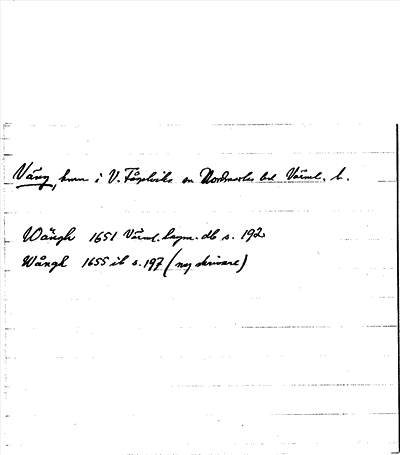 Väng, hmn i V. Fågelvik sn Nordmarks hd Värml. l.
Wängh 1651 Värml. lagm. db s. 192
Wångh 1655 ib s. 197 (ny skrivare)